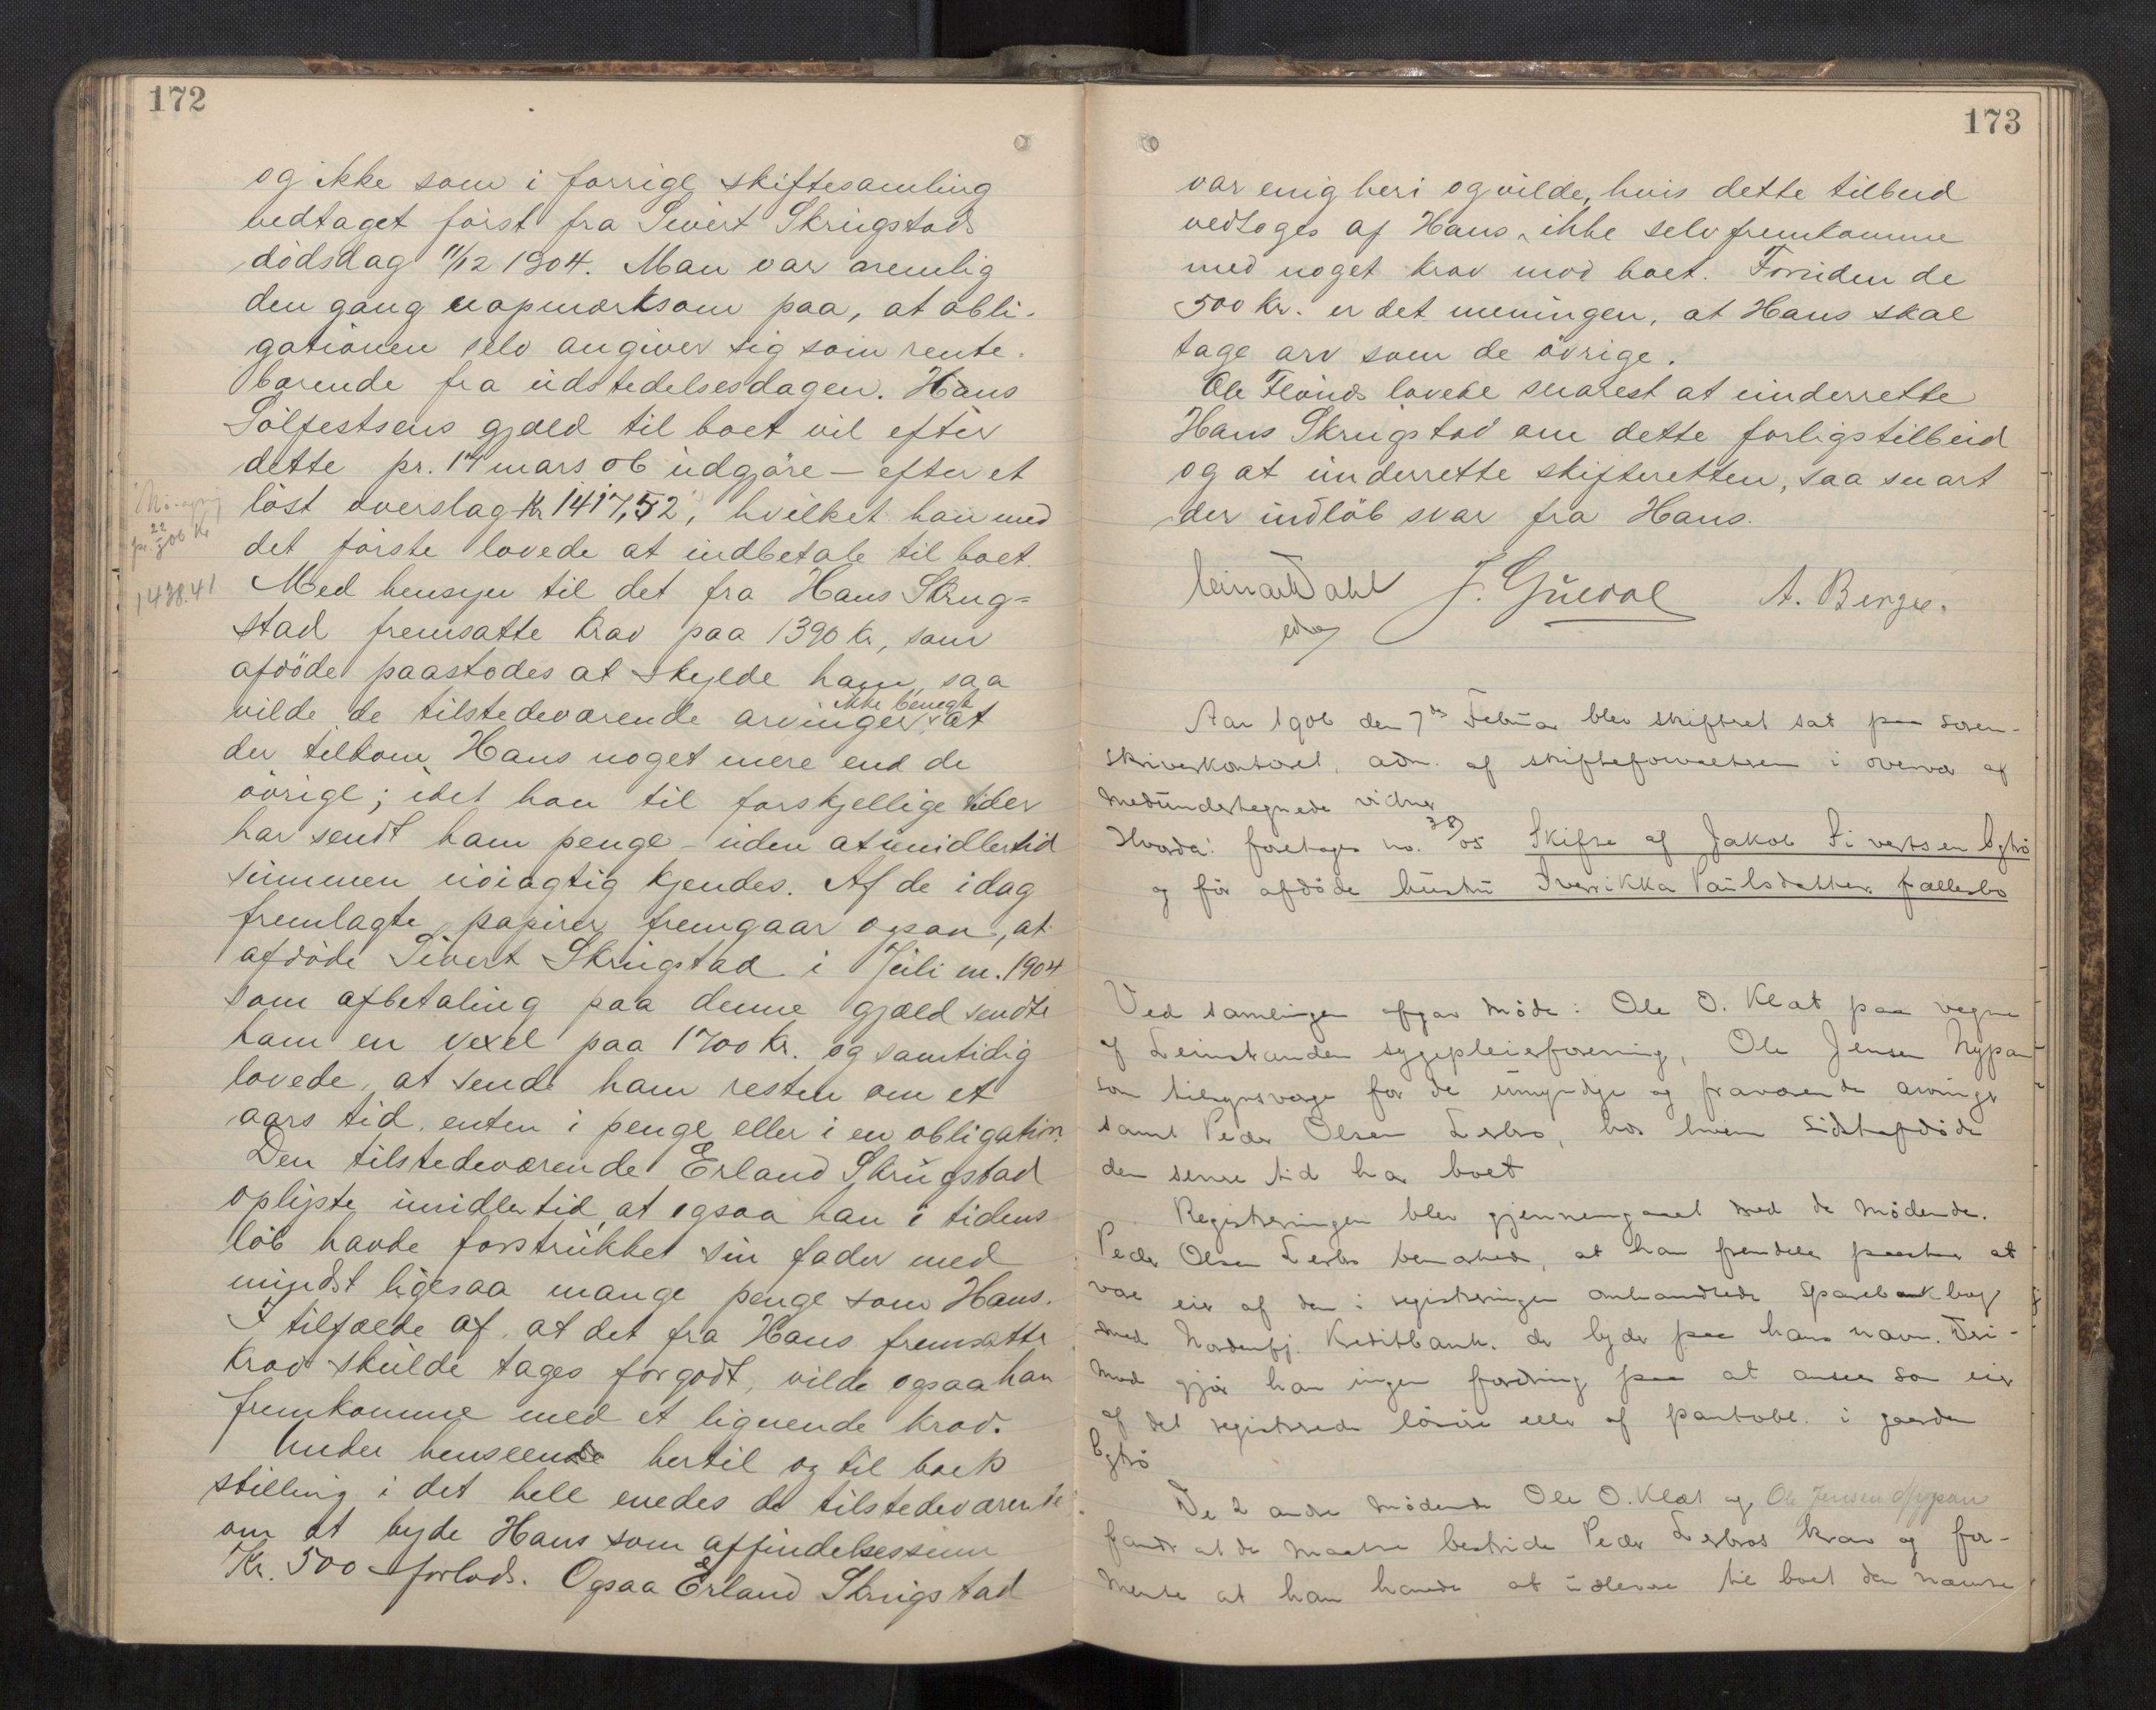 172
og ikke som i forrige skiftesamling
vedtaget först fra Sivert Skrugstads
dödsdag 11/12 1904. Man var nemlig
den gang uopmærksom paa, at obli-
gationen selv angiver sig som rente-
bærende fra udstedelsesdagen. Hans
Sölfestsens gjæld til boet vil efter
dette pr. 14 mars 06 udgjöre – efter et
löst overslag Kr 1417,52, hvilket han med
det förste lovede at indbetale til boet.
pr. 22/3 06 Kr
1438.41
Med hensyn til det fra Hans Skrug=
stad fremsatte krav paa 1390 Kr, som
afdöde paastodes at skylde ham, saa
vilde de tilstedeværende arvinger ikke benegte at
der tilkom Hans noget mere end de
övrige; idet han til forskjellige tider
har sendt ham penge – uden at imidlertid
summen nöiagtig kjendes. Af de idag
fremlagte papirer fremgaar ogsaa, at
afdöde Sivert Skrugstad i Juli m. 1904
som afbetaling paa denne gjæld sendte
ham en vexel paa 1700 Kr. og samtidig
lovede, at sende ham resten om et
aars tid, enten i penge eller i en obligation.
Den tilstedeværende Erland Skrugstad
oplyste imidlertid at ogsaa han i tidens
löb havde forstrukket sin fader med
mindst ligesaa mange penge som Hans.
I tilfælde af, at det fra Hans fremsatte
krav skulde tages forgodt, vilde ogsaa han
fremkomme med et lignende krav.
Under henseende hertil og til boets
stilling i det hele enedes de tilstedeværende
om at byde Hans som affindelsessum
Kr. 500 – forlods. Ogsaa Erland Skrugstad
173
var enig heri og vilde, hvis dette tilbud
vedtoges af Hans, ikke selv fremkomme
med noget krav mod boet. Foruden de
500 Kr. er det meningen, at Hans skal
tage arv som de övrige.
Ole Flönds lovede snarest at underrette
Hans Skrugstad om dette forligstilbud
og at underrette skifteretten, saa snart
der indlöb svar fra Hans.
Einar Dahl J. Guldal A. Berge.
Aar 1906 den 7de Februar blev skifteret sat paa Soren-
skriverkontoret, adm. af skifteforvalteren i overvær af
medundertegnede vidner
Hvorda: foretages no. 38/05 Skifte af Jakob Sivertsen Bytrö
og för afdöde hustru Fredrikka Paulsdatters fællesbo
Ved samlingen afgav möde: Ole O. Klæt paa vegne
af Leinstrandens sygepleierforening, Ole Jensen Nypan
som tilsynsværge for de umyndige og fraværende arvinger
samt Peder Olsen Lerbro, hos hvem Sidstafdöde
den senere tid har boet
Registreringen blev gjennemgaaet med de mödende.
Peder Olsen Lerbro bemærkede, at han fremdeles paastaar at
være eier af den i registreringen omhandlede Sparebankbog
med Nordenfj. Kreditbank, der lyder paa hans navn. Deri-
mod gjör han ingen fordring paa at ansees som eier
af det registrerede lösöre eller af pantobl. i gaarden
Bytrö
De 2 andre mödende Ole O. Klæt og Ole Jensen Nypan
fandt at de maatte bestride Peder Lerbros krav og for-
mente at han havde at udlevere til boet den nævnte